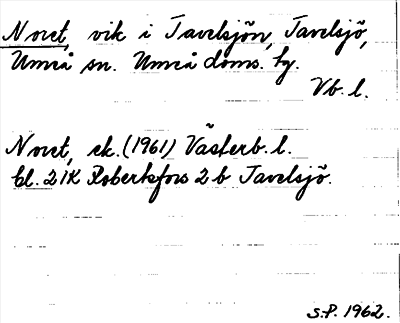 Noret, vik i Tavelsjön, Tavelsjö,
Umeå sn. Umeå doms. hg.
Vb. l.
Noret, ek. (1961) Västerb. l.
bl. 21K Robertsfors 2 b Tavelsjö.
S.P. 1962.